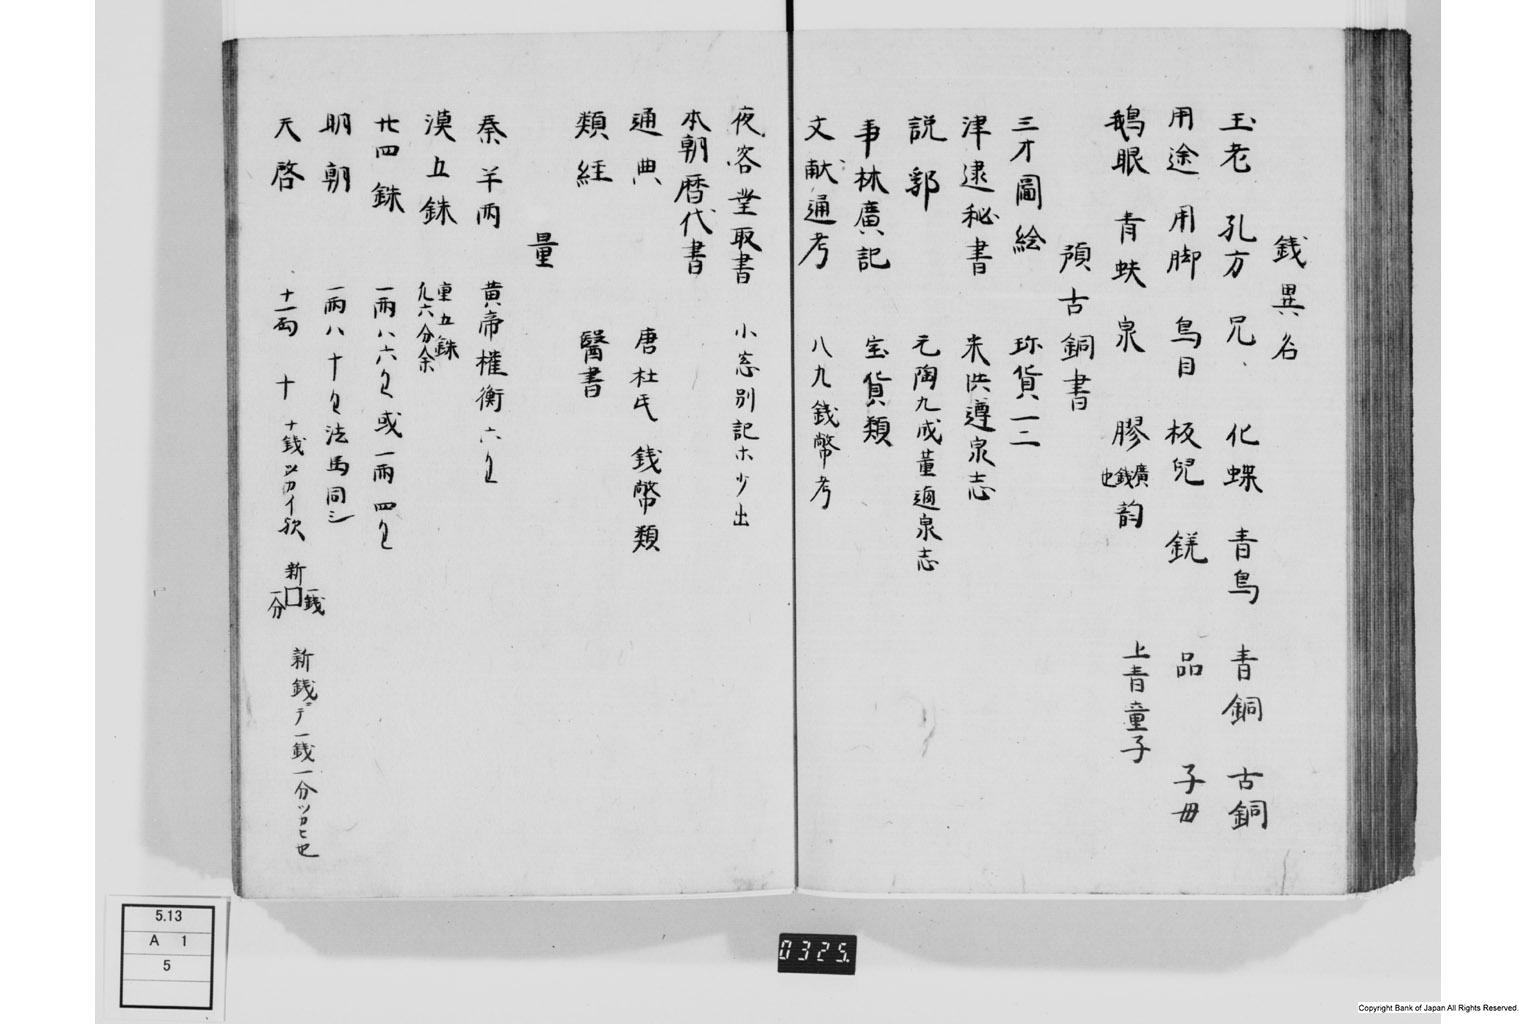 銭異名
玉老 孔方兄 化蝶 青鳥 青銅 古銅
用途 用脚 鳥目 板児 鋩 品 子母
鵝眼 青蚨 泉 膠 廣韵 銭也 上青童子
古銅書
三才圖絵 珎貨一二
津逮秘書 宋洪遵泉志
説郛 元陶九成董逌泉志
事林廣記 宝貨類
文献通考 八九銭幣考
夜客叢取書 小窓別記ホ少出
本朝暦代書
通典 唐杜氏 銭幣類
類経 醫書
量
秦半兩 黄帝権衡六匁
漢五銖 重五銖 九六分余
廿四銖 一兩八六匁或一兩四匁
明朝 一兩八十匁法馬同シ
天啓 十一兩 十 十銭ツカイ欤 新 一銭 一分 新銭ニテ一銭一分ツカヒ也
5.13
A 1
5
0325.
Copyright Bank of Japan All Rights Reserved.